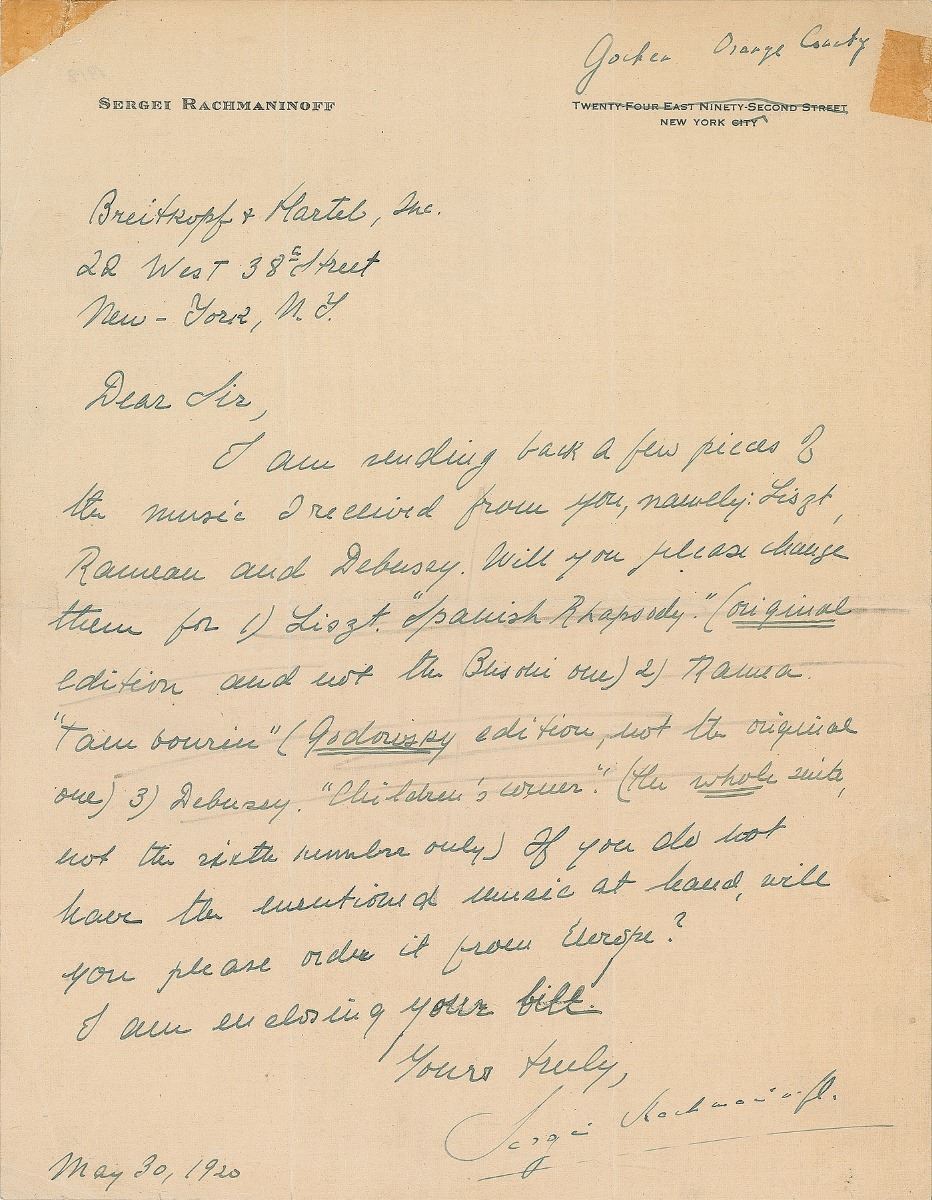 Goshen Orange County
SERGEI RACHMANINOFF
TWENTY-FOUR EAST NINETY-SECOND STREET
NEW YORK CITY
Breitkopf & Hartel, Inc.
22 West 38th Street
New-York, N.Y.
Dear Sir,
I am sending back a few pieces of
the music I received from you, namely: Liszt,
Rameau and Debussy. Will you please change
them for 1) Liszt. "Spanish Rhapsody." (original
edition and not the Busoni one) 2) Ramea.
"Tambourin" (Godowsky edition, not the original
one) 3) Debussy. "Children's corner". (the whole suite,
not the sixth number only) If you do not
have the mentioned music at hand, will
you please order it from Europe?
I am enclosing your bill.
Yours truly,
Sergei Rachmaninoff.
May 30, 1920